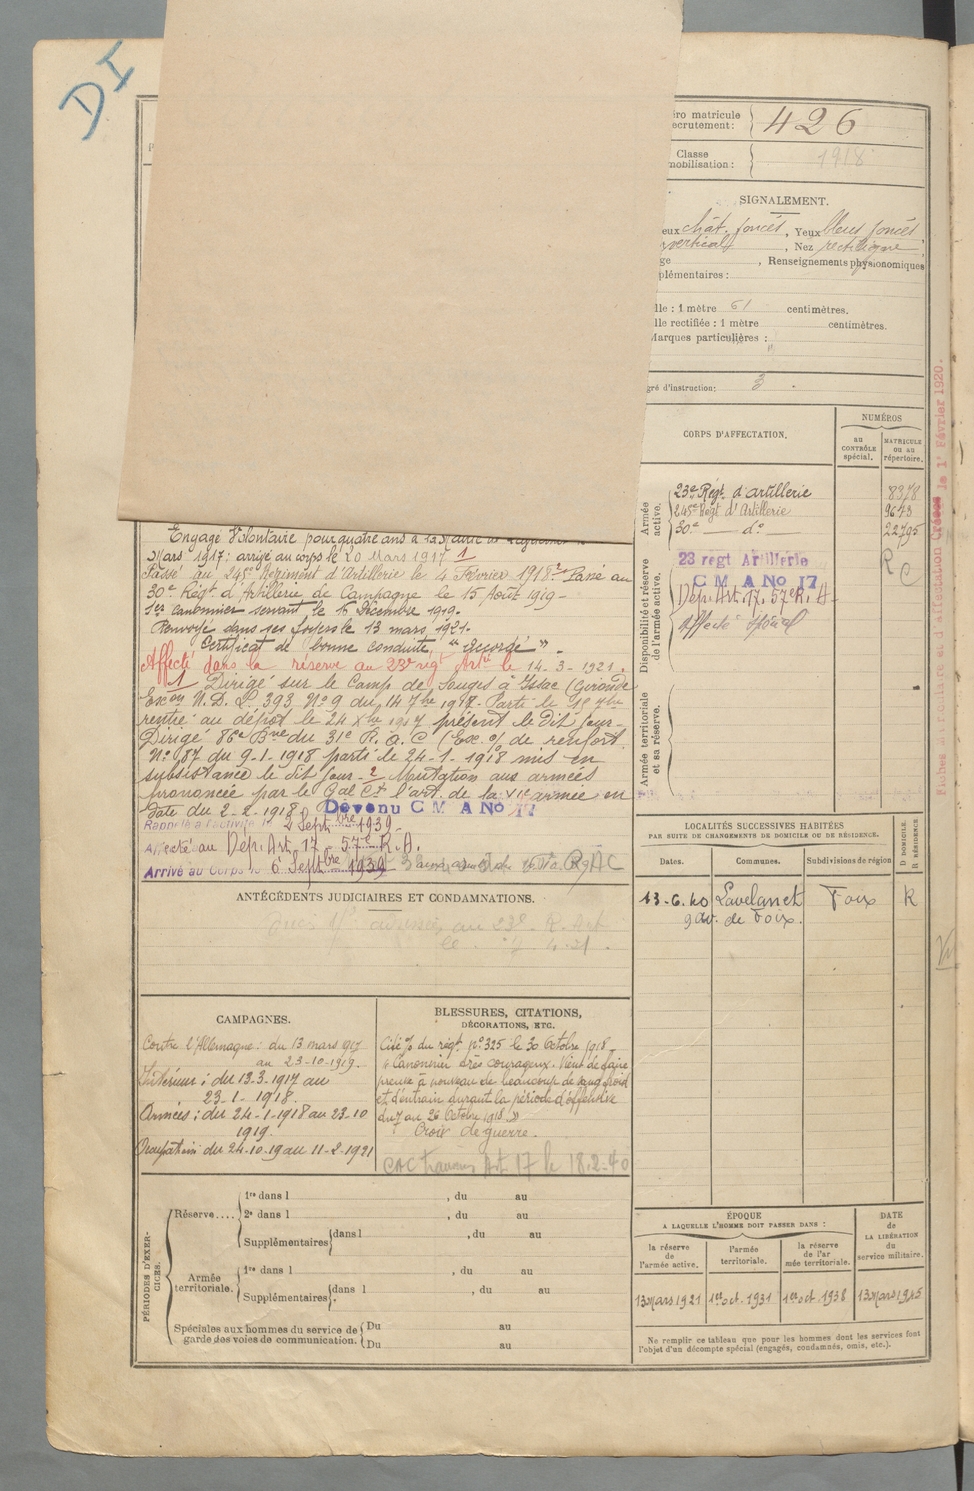 DI
éro matricule
ecrutement : 426
Classe
mobilisation : 1918
SIGNALEMENT.
eux chât. foncés, Yeux bleus foncés
vertical, Nez rectiligne
ge , Renseignements physionomiques
plémentaires :
lle : 1 mètre 61 centimètres.
lle rectifiée : 1 mètre centimètres.
Marques particulières :
"
gré d'instruction : 3
CORPS D'AFFECTATION.
NUMÉROS
au CONTRÔLE spécial.
MATRICULE OU AU répertoire.
Armée active.
23e Régt d'artillerie 8378
245e Régt d'Artillerie 9643
30e — do. 22795
Disponibilité et réserve de l'armée active.
23 regt Artillerie
C M A No 17
Dép. Art. 17. 57e R. A.
Affecté spécial
R C
Armée territoriale et sa réserve.
Engagé Volontaire pour quatre ans à la Mairie de
Mars 1917 : arrivé au corps le 20 Mars 1917 1
Passé au 245e Régiment d'Artillerie le 4 Février 1918 2 Passé au
30e Régt d'Artillerie de Campagne le 15 Août 1919 -
1er canonnier servant le 15 Décembre 1919.
Renvoyé dans ses foyers le 13 mars 1921.
Certificat de bonne conduite "accordé".
Affecté dans la réserve au 23e régt Artie le 14-3-1921.
1 Dirigé sur le Camp de Souges à Issac (Gironde
N. D. P. 393 No 9 du 14 7bre 1917. Parti le
rentré au dépôt le 24 Xbre 1917 présent le dit jour.
Dirigé 86e Bie du 31e R. A. C. (Ex. o/ de renfort
No 87 du 9-1-1918 parti le 24-1-1918 mis en
subsistance le dit jour - 2 Mutation aux armées
prononcée par le Gal Ct l'art. de la VIe armée en
date du 2-2-1918 Devenu C M A No 17
Rappelé à l'activité le 4 Septbre 1939.
Affecté au Dép. Art. 17 - 57e R. A.
Arrivé au Corps le 6 Septbre 1939
ANTÉCÉDENTS JUDICIAIRES ET CONDAMNATIONS.
au 23e R. Art
CAMPAGNES.
Contre l'Allemagne : du 13 mars 1917
au 23-10-1919.
Intérieur : du 13-3-1917 au
23-1-1918.
Armées : du 24-1-1918 au 23-10
1919.
Occupation du 24-10-19 au 11-2-1921
BLESSURES, CITATIONS,
DÉCORATIONS, ETC.
Cité o/ du régt no 325 le 30 Octobre 1918
"Canonnier très courageux. Vient de faire
preuve à nouveau de beaucoup de sang froid
et d'entrain durant la période d'offensive
du 7 au 26 Octobre 1918."
Croix de guerre.
Art 17 le 18.2.40
LOCALITÉS SUCCESSIVES HABITÉES
PAR SUITE DE CHANGEMENTS DE DOMICILE OU DE RÉSIDENCE.
D DOMICILE. R RÉSIDENCE
Dates. Communes. Subdivisions de région
13-6.40 Lavelanet Foix R
9 av. de Foix.
PÉRIODES D'EXERCICES.
Réserve....
1re dans l , du au
2e dans l , du au
Supplémentaires dans l , du au
Armée territoriale.
1re dans l , du au
Supplémentaires dans l , du au
Spéciales aux hommes du service de garde des voies de communication.
Du au
Du au
ÉPOQUE
A LAQUELLE L'HOMME DOIT PASSER DANS :
la réserve de l'armée active.
l'armée territoriale.
la réserve de l'armée territoriale.
DATE de LA LIBÉRATION du service militaire.
13 Mars 1921 1er oct. 1931 1er oct. 1938 13 Mars 1945
Ne remplir ce tableau que pour les hommes dont les services font
l'objet d'un décompte spécial (engagés, condamnés, omis, etc.).
d'affectation Créées le 1er Février 1920.